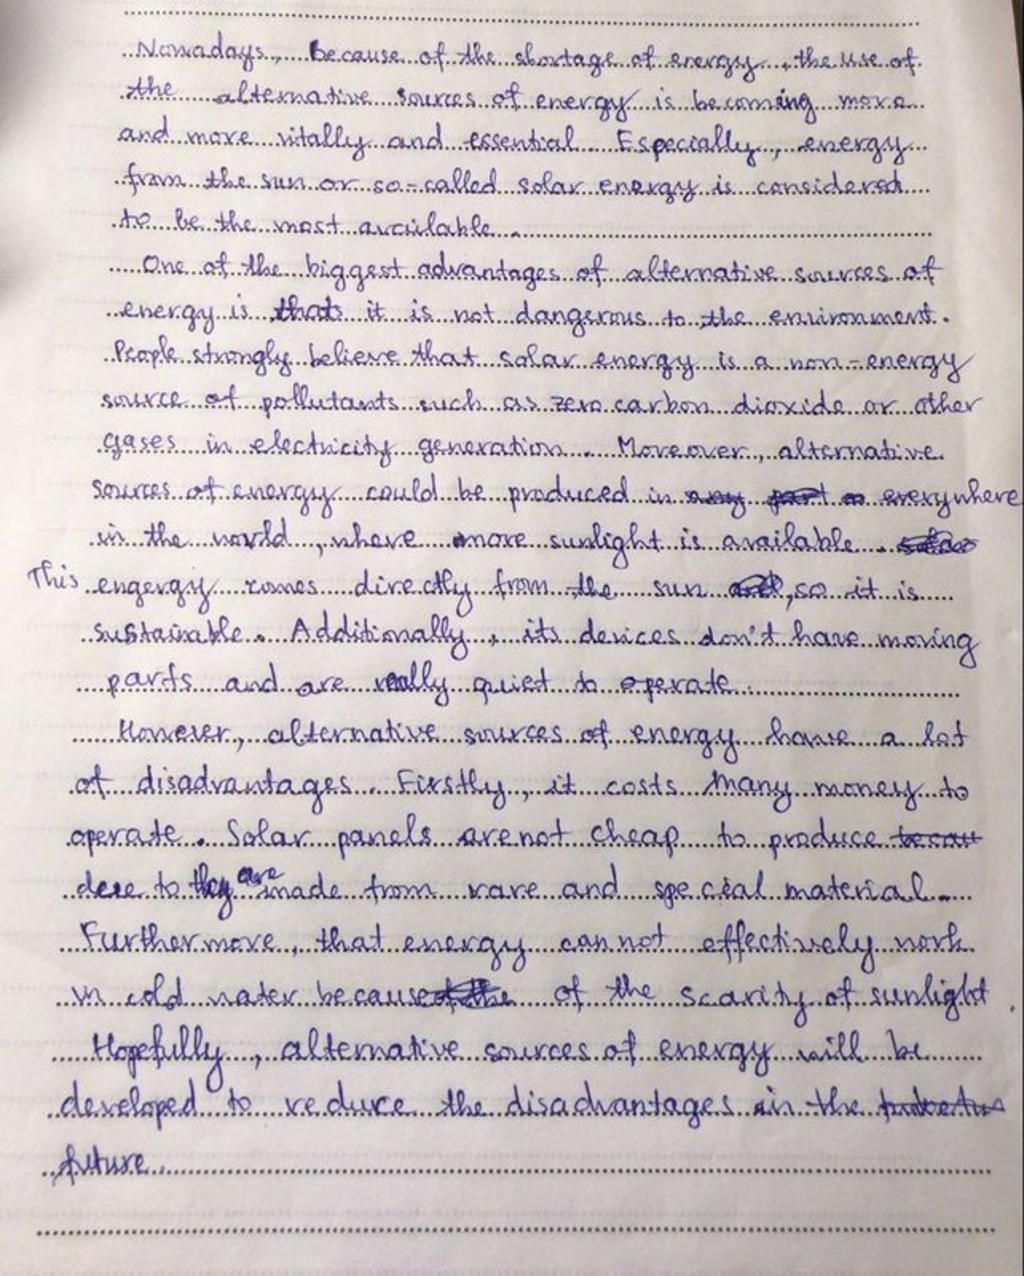 Nowadays, because of the shortage of energy, the use of
the alternative sources of energy is becoming more
and more vitally and essential. Especially, energy
from the sun or so-called solar energy is considered
to be the most available.
One of the biggest advantages of alternative sources of
energy is that it is not dangerous to the environment.
People strongly believe that solar energy is a non-energy
source of pollutants such as zero carbon dioxide or other
gases in electricity generation. Moreover, alternative
sources of energy could be produced in any part everywhere
in the world, where more sunlight is available.
This engergy comes directly from the sun, so it is
sustainable. Additionally, its devices don't have moving
parts and are really quiet to operate.
However, alternative sources of energy have a lot
of disadvantages. Firstly, it costs many money to
operate. Solar panels are not cheap to produce
to they are made from rare and special material.
Furthermore, that energy cannot effectively work
in cold water because of the scarity of sunlight.
Hopefully, alternative sources of energy will be
developed to reduce the disadvantages in the
future.